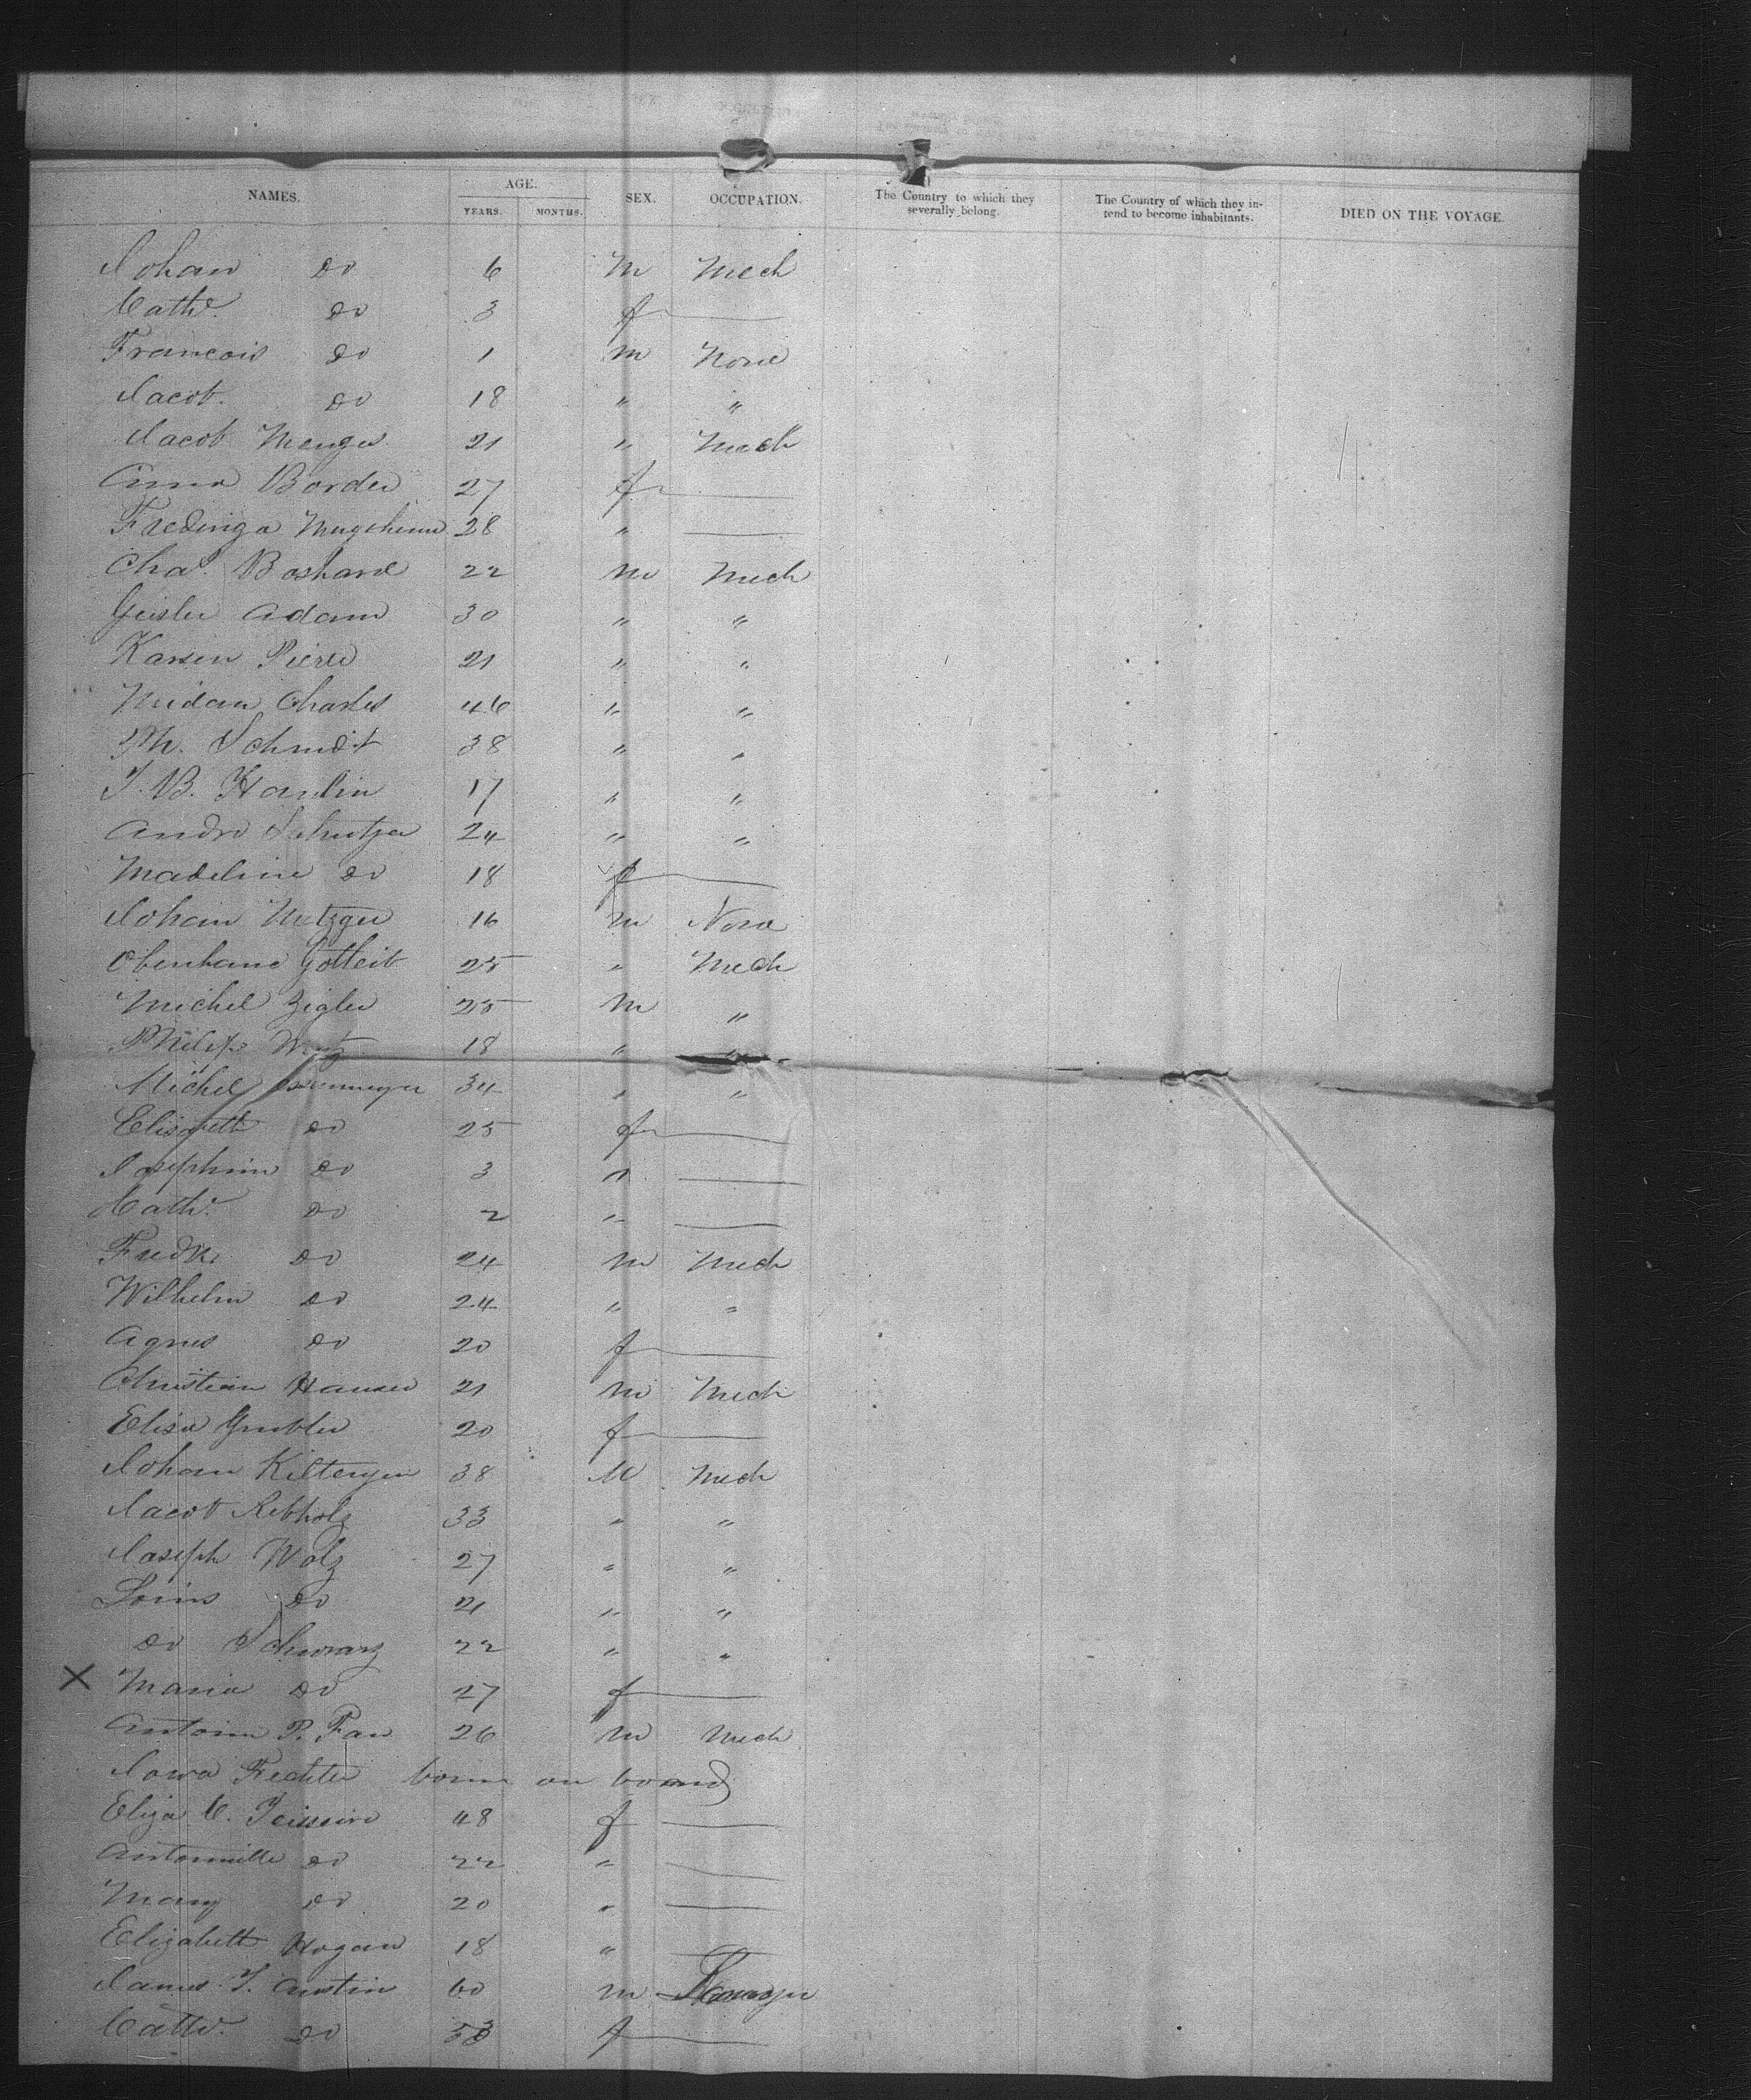 NAMES. AGE. SEX. OCCUPATION. The Country to which they severally belong. The Country of which they intend to become inhabitants. DIED ON THE VOYAGE.
YEARS. MONTHS.
Johan do 6 m Mech
Cathe. do 3 f
Francois do 1 m None
Jacob. do 18 " "
Jacob Menger 21 " Mech
Anna Border 27 f
Fredinga 28 "
Chas. Boshard 22 m Mech
Geisler Adam 30 " "
Karsen Pierre 21 " "
Midan Charles 46 " "
Ph. Schmidt 38 " "
J. B. Hanlin 17 " "
Andre Schutzer 24 " "
Madeline do 18 f
Johan Metzger 16 m None
Gotleib 25 " Mech
Michel Zigler 25 m "
Philip 18 " "
Michel 34 " "
Elisabeth do 25 f
Josephine do 3 "
Cathe. do 2 "
Fredk. do 24 m Mech
Wilhelm do 24 " "
Agnes do 20 f
Christian Hauser 21 m Mech
Elisa Grubler 20 f
Johan 38 M Mech
Jacob Rebholz 33 " "
Joseph Wolz 27 " "
Louis do 21 " "
do Schwarz 22 " "
X Maria do 27 f
Antoine P. Fau 26 m Mech
Iowa Fechter born on board
Eliza C. Teisseire 48 f
Antoinette do 22 "
Mary do 20 "
Elizabeth Hogan 18 "
James T. Austin 60 m Lawyer
Cathe. do 53 f